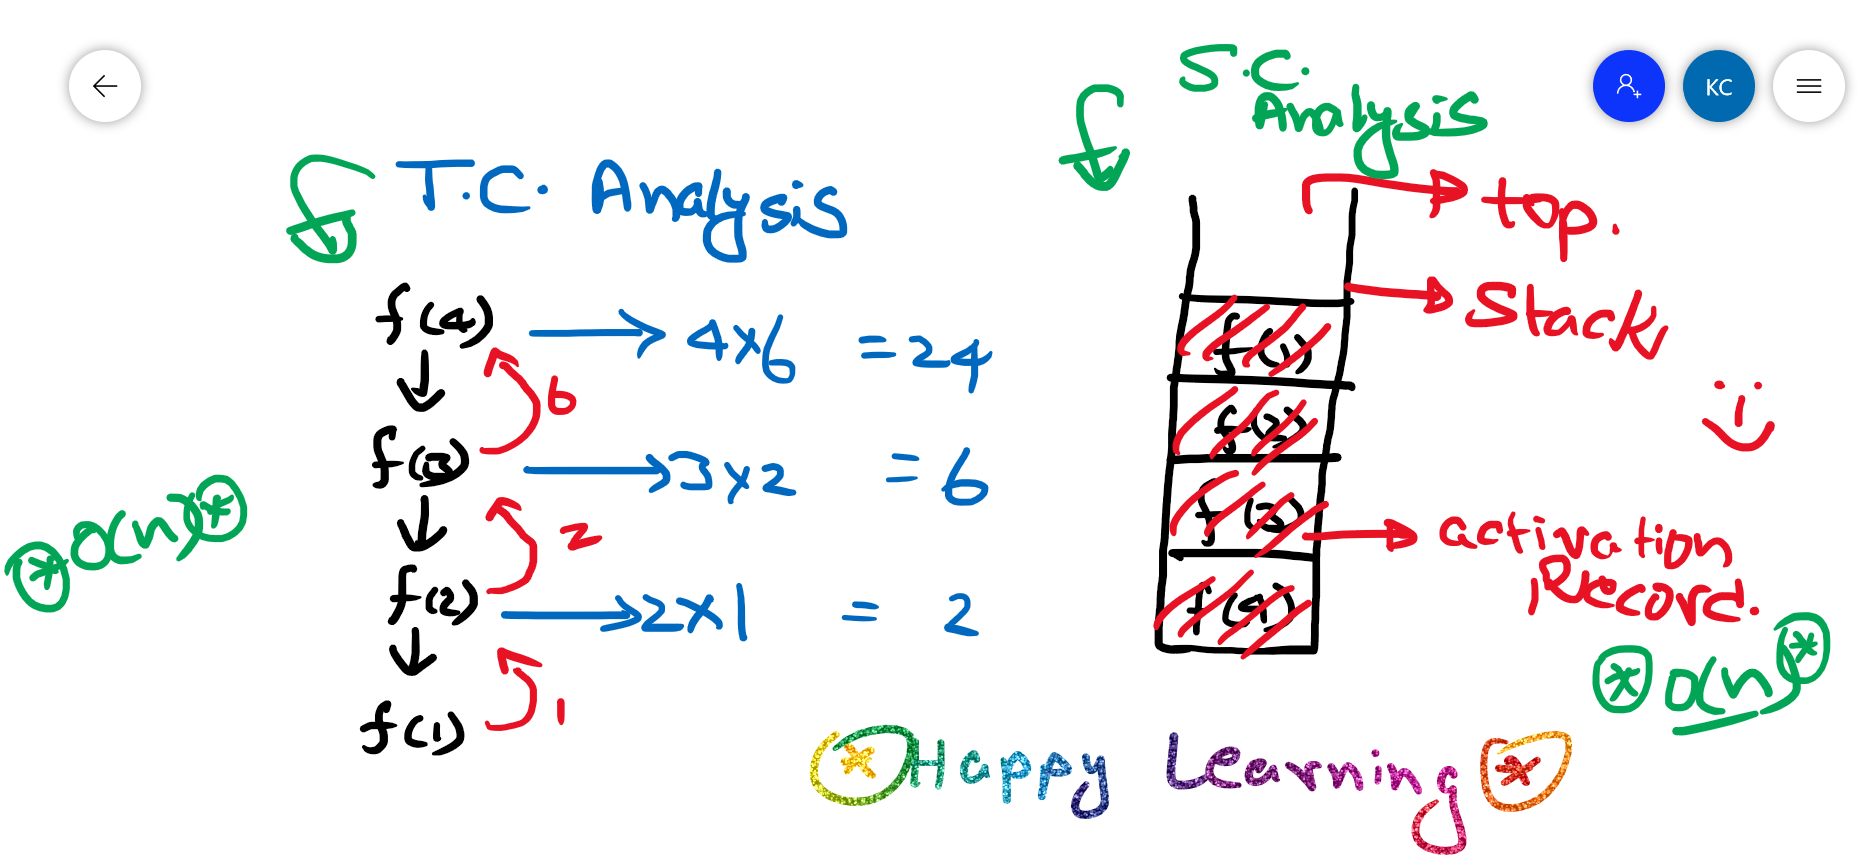 KC
T.C. Analysis
f(4) → 4×6 = 24
6
f(3) → 3×2 = 6
2
f(2) → 2×1 = 2
1
f(1)
*O(n)*
S.C.
Analysis
top.
Stack
f(1)
f(2)
f(3)
activation
Record.
f(4)
*O(n)*
*Happy Learning*